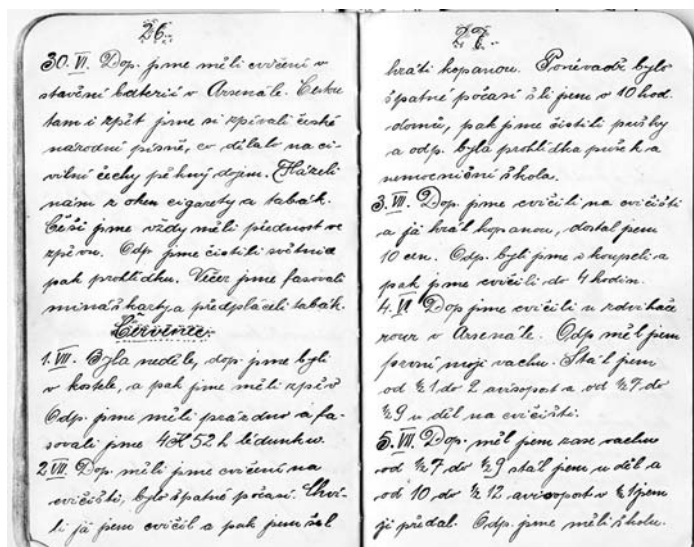 26.
30. VI. Dop. jme měli cvičení v
stavění baterií v Arsenále. Cestou
tam i zpět jsme si zpívali české
národní písně, co dělalo na ci-
vilní čechy pěkný dojem. Házeli
nám z oken cigarety a tabák.
Češi jsme vždy měli přednost ve
zpěvu. Odp. jsme čistili světnice
pak prohlídku. Večer jsme fasovali
mináš karty a předpláceli tabák.
Červenec.
1. VII. Byla neděle, dop. jsme byli
v kostele, a pak jsme měli zpěv
Odp. jsme měli prázdno a fa-
sovali jsme 4K 52 h lédunku.
2. VII. Dop. měli jsme cvičení na
cvičišti, bylo špatné počasí. Chví-
li já jsem cvičil a pak jsem šel
27.
hráti kopanou. Poněvadž bylo
špatné počasí šli jsem o 10 hod.
domů, pak jsme čistili pušky
a odp. byla prohlídka pušek a
nemocniční škola.
3. VII. Dop. jsme cvičili na cvičišti
a já hrál kopanou, dostal jsem
10 cen. Odp. byli jsme v koupeli a
pak jsme cvičili do 4 hodin.
4. VII Dop jsme cvičili u zdviháče
rour v Arsenále. Odp měl jsem
první moji vachu. Stál jsem
od ½ 1 do 2 avisopost a od ½ 7 do
½ 9 u děl na cvičišti.
5. VII. Dop. měl jsem zase vachu
od ½ 7 do ½ 9 stál jsem u děl a
od 10 do ½ 12 avisopost v ½ 1 jsem
ji předal. Odp. jsme měli školu.